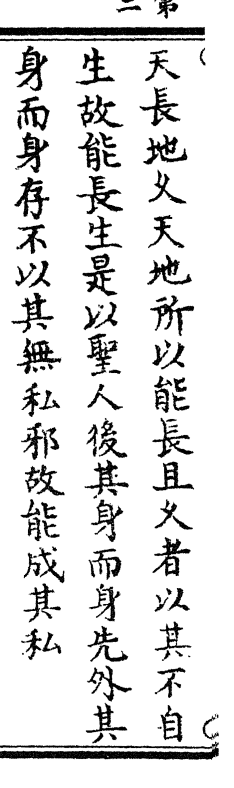 天長地久天地所以能長且久者以其不自
生故能長生是以聖人後其身而身先外其
身而身存不以其無私邪故能成其私